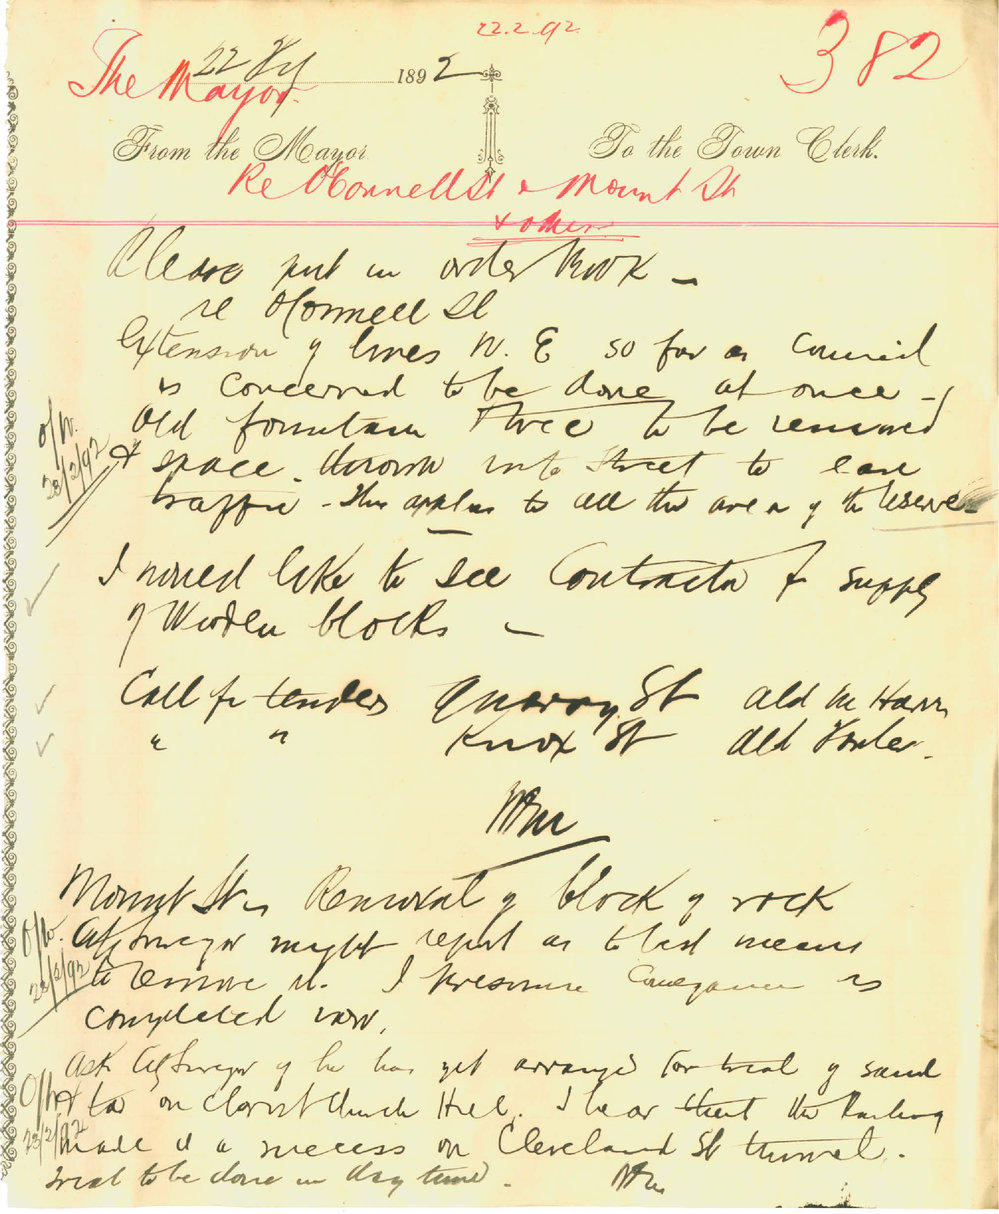 22.2.92
382
22 Feby 1892
The Mayor.
From the Mayor To the Town Clerk.
Re O'Connell St & Mount St
& others
Please put in order Book -
re O'Connell St
Extension of lines N. E so far as Council
is concerned to be done at once -
Old fountain there to be removed
& space thrown into Street to ease
traffic - This applies to all the area of the reserve -
O/W.
23/2/92
I would like to see Contractor for supply
of Wooden blocks -
Call for tenders Quarry St Ald M Harris
" " Knox St Ald Fowler.
WPM
Mount St Removal of block of rock
O/W.
23/2/92
City Surveyor might report as to best means
to remove it. I presume Conveyance is
completed now.
Ask City Surveyor if he has yet arranged for trial of sand
O/W
23/2/92
& tar on Christ Church Hill. I hear that the Railway
made it a success on Cleveland St tunnel.
trial to be done in day time.
WPM